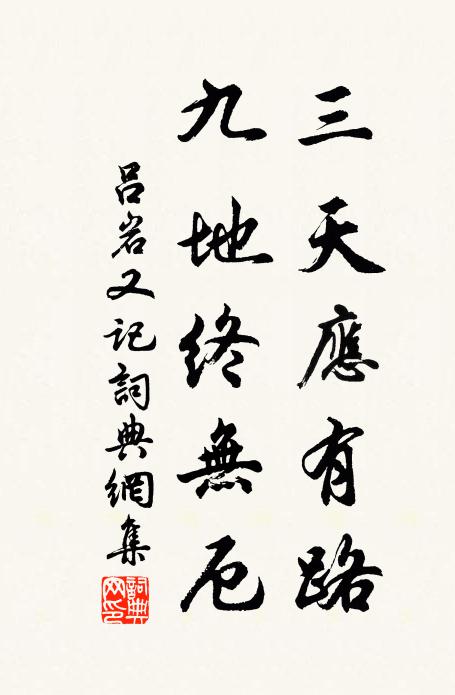 三天應有路
九地終無厄
呂岩又記詞典網集
詞典网印